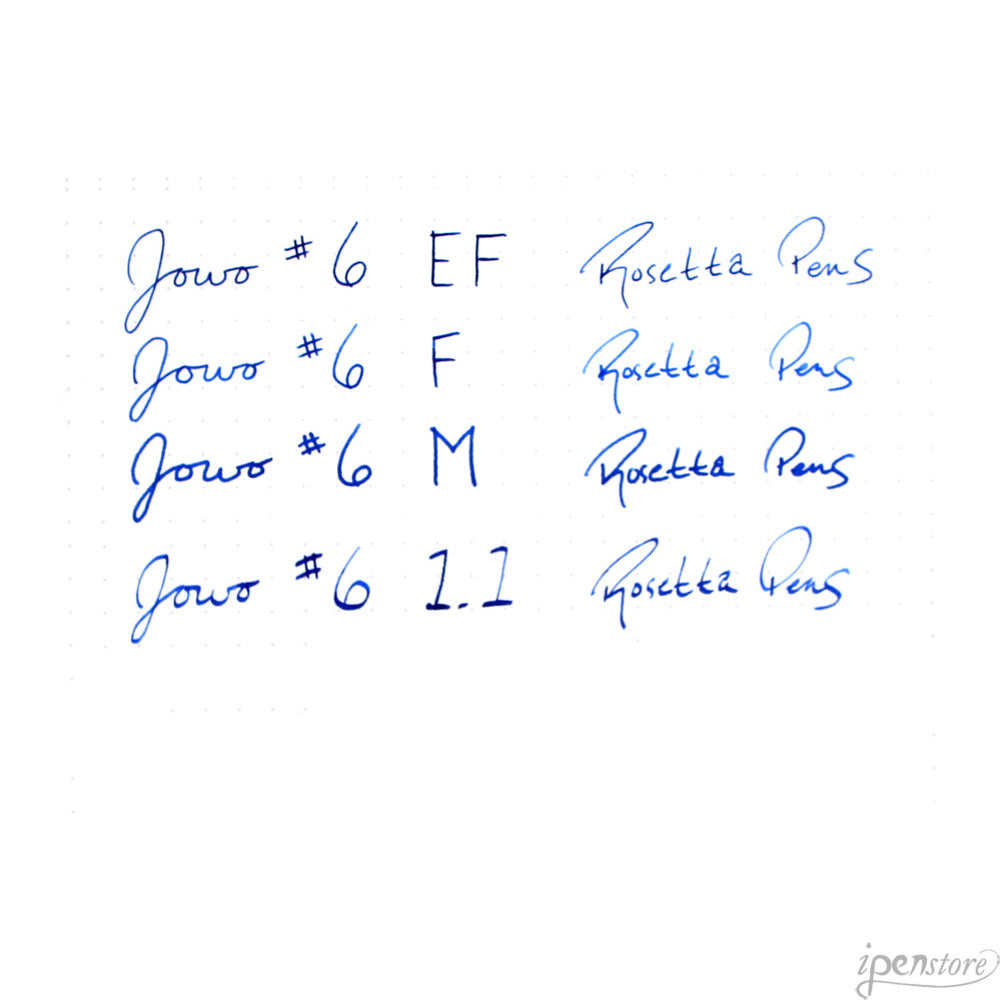 Jowo #6 EF Rosetta Pens
Jowo #6 F Rosetta Pens
Jowo #6 M Rosetta Pens
Jowo #6 1.1 Rosetta Pens
ipenstore